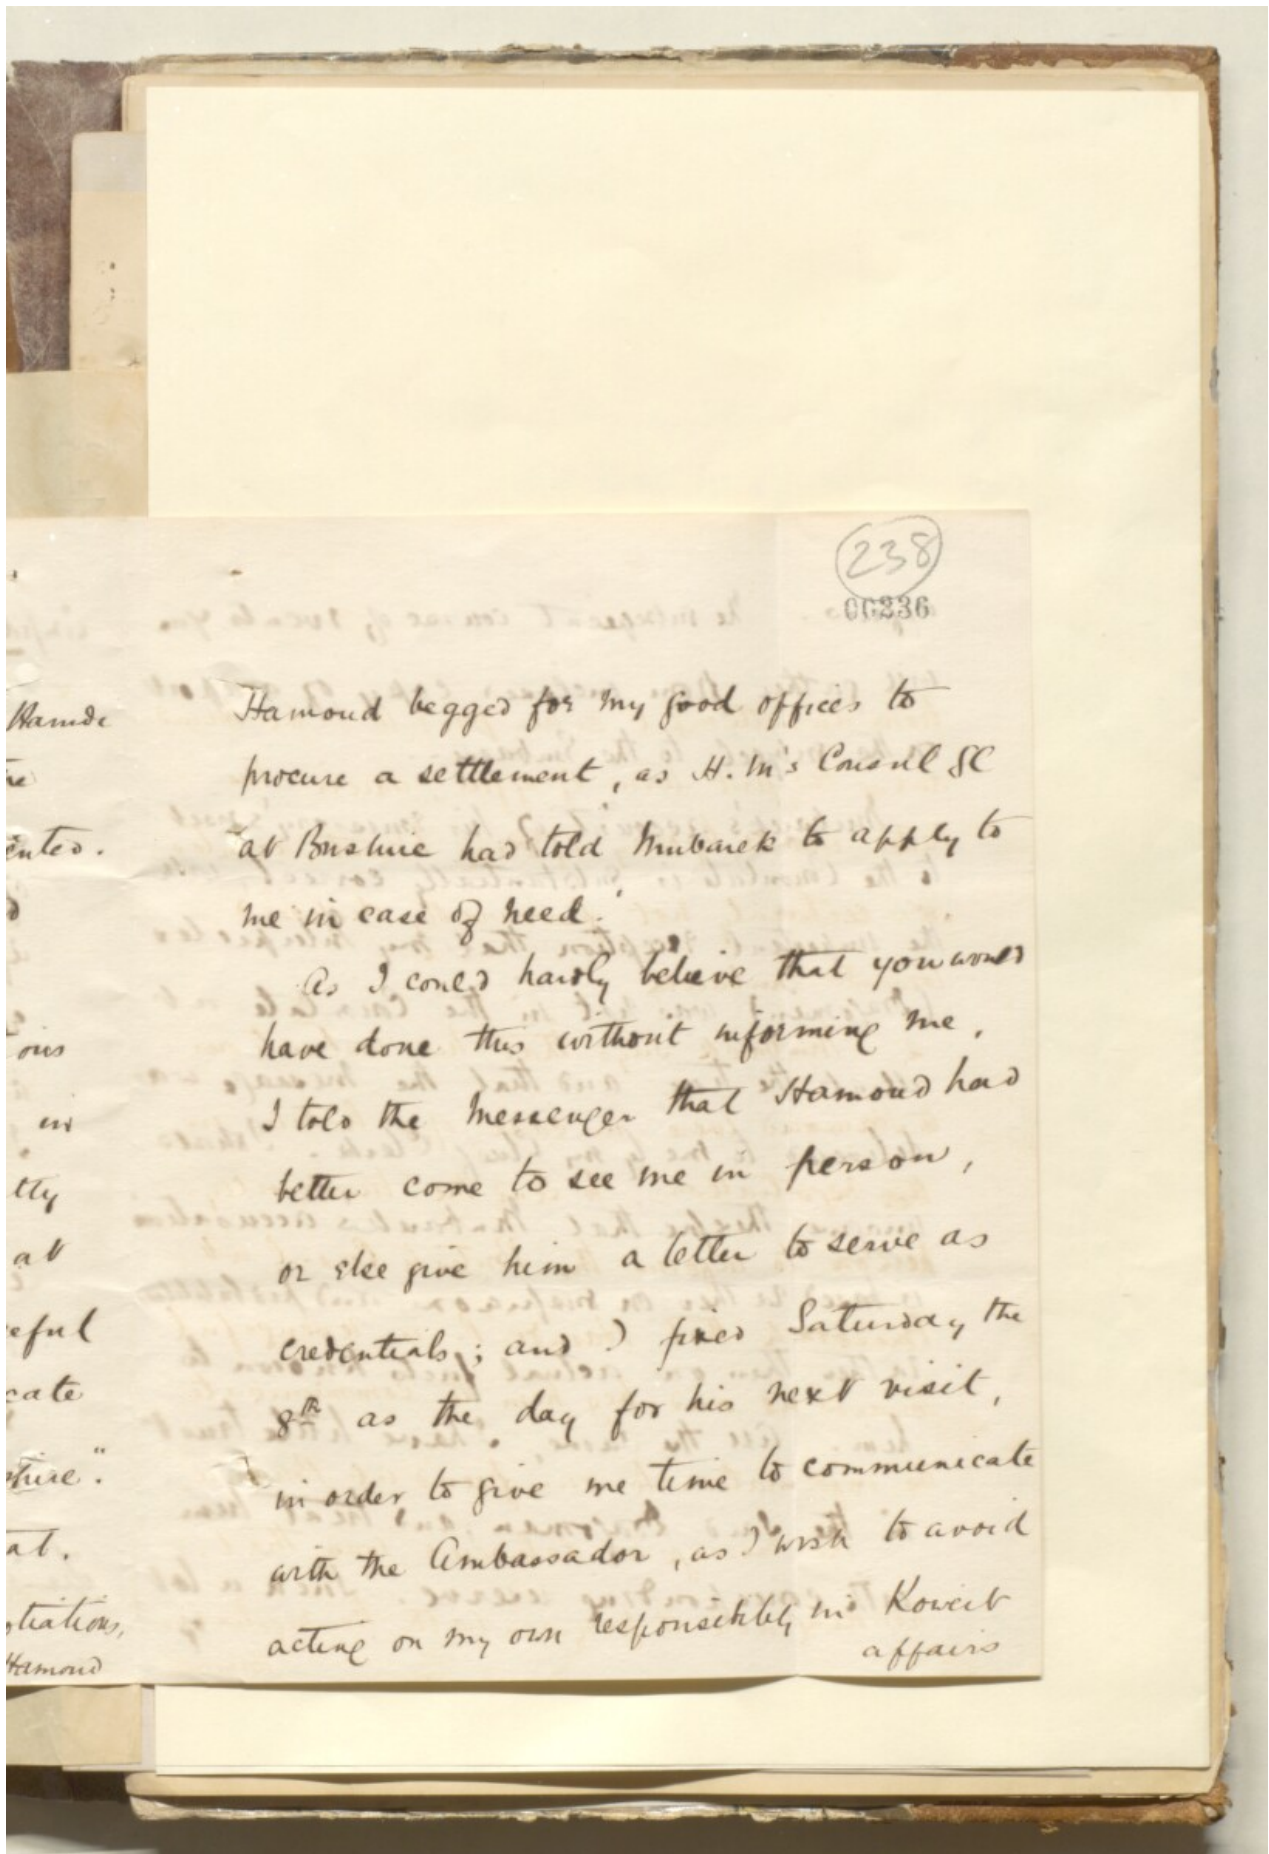 238
00236
Hamoud begged for my good offices to
procure a settlement, as H. M's Consul Gl
at Bushire had told Mubarek to apply to
me in case of need.
As I could hardly believe that you would
have done this without informing me,
I told the messenger that Hamoud had
better come to see me in person,
or else give him a letter to serve as
credentials; and I fixed Saturday the
8th as the day for his next visit,
in order to give me time to communicate
with the Ambassador, as I wish to avoid
acting on my own responsibility in Koweit
affairs
Hamdi
ented.
ous
in
tty
at
eful
cate
sture".
at.
otiations,
Hamoud